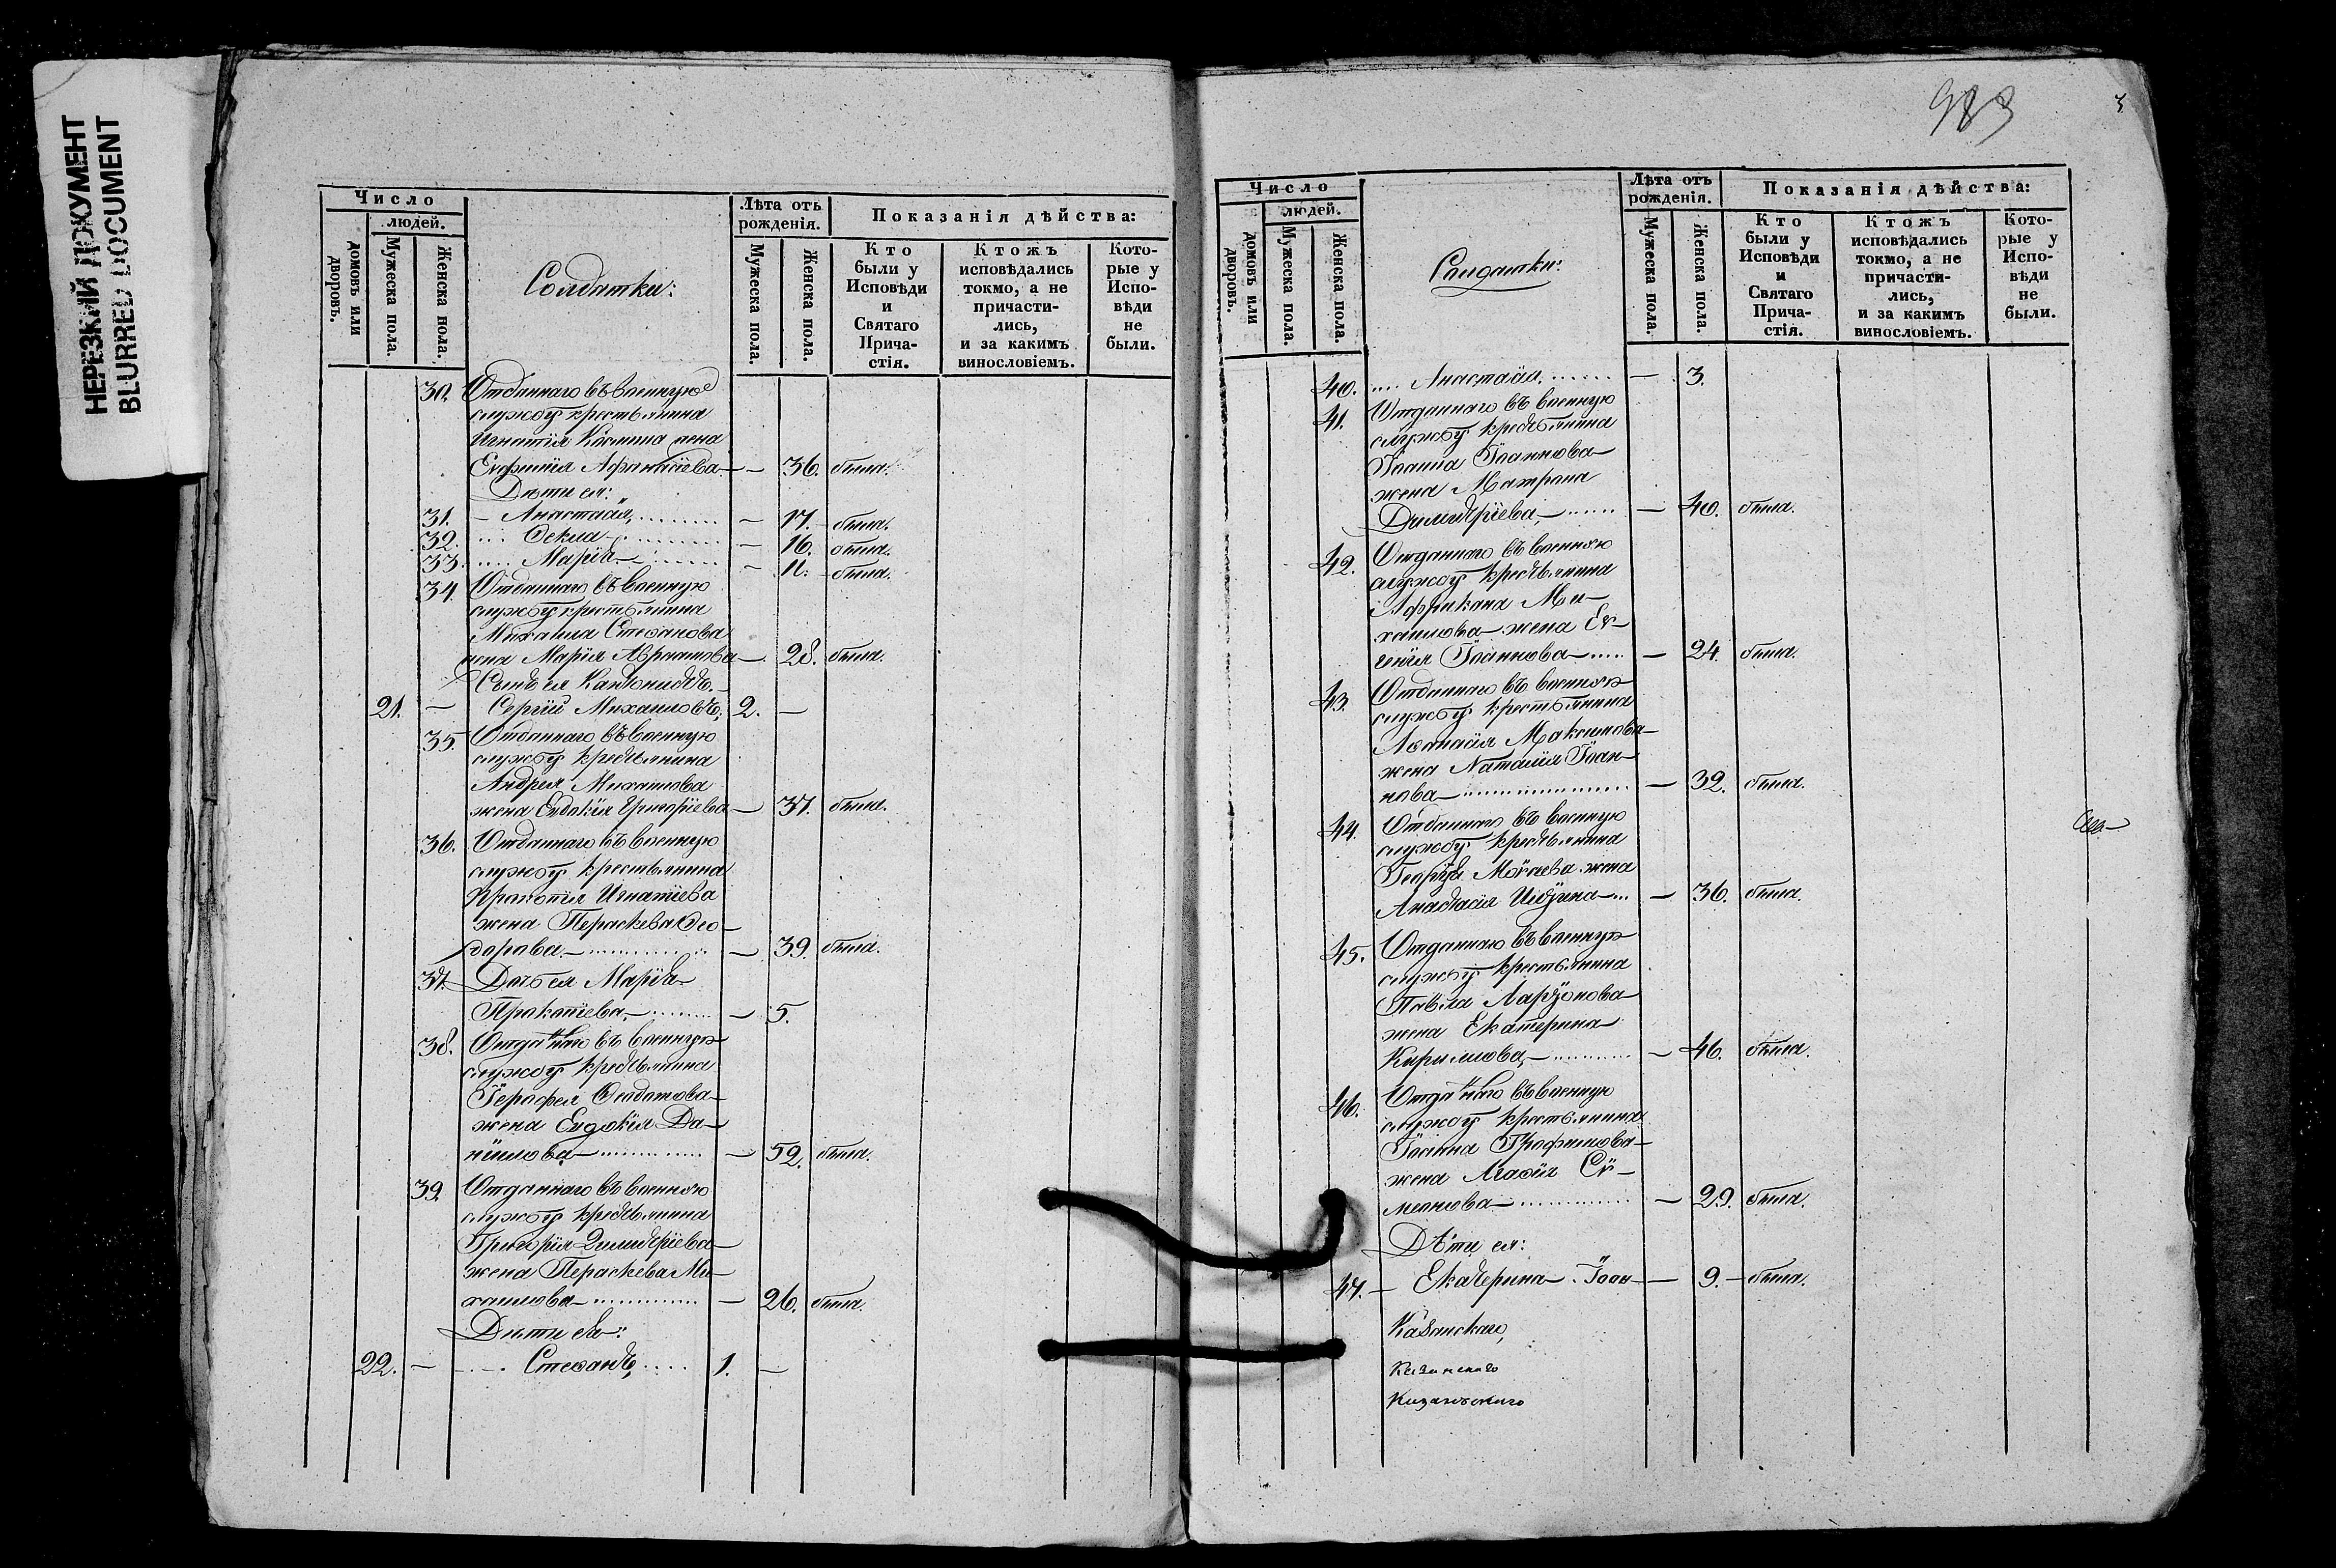 НЕРЕЗКИЙ ДОКУМЕНТ
BLURRED DOCUMENT
Число
людей.
домовъ или дворовъ.
Мужеска пола.
Женска пола.
Солдатки:
Лѣта отъ рожденія.
Мужеска пола.
Женска пола.
Показанія дѣйства:
Кто были у Исповѣди и Святаго Прича-стія.
Ктожъ исповѣдались токмо, а не причасти-лись, и за какимъ винословіемъ.
Кото-рые у Испо-вѣди не были.
30. Отданнаго въ военную
службу крестьянина
Игнатія Косьмина жена
Евфимія Афанасіева — — 36. была.
Дѣти ея:
31. — Анастасія, — 17. — была.
32. Фекла — — 16. была.
33. Марія — — 11. — была.
34. Отданнаго въ военную
службу крестьянина
Михаила Стефанова
жена Марія — 28. была.
Сынъ ея Кантонистъ —
21. — Сергій Михаиловъ, 2. —
35. Отданнаго въ военную
службу крестьянина
Андрея Михаилова
жена Евдокія Григоріева — 37. была.
36. Отданнаго въ военную
службу крестьянина
Прокопія Игнатіева
жена Параскева Фео—
дорова — — 39. была.
37. Дочь ея Марія
Прокопіева, — — 5.
38. Отданнаго въ военную
службу крестьянина
жена Евдокія Да—
ніилова — — 52. была.
39. Отданнаго въ военную
службу крестьянина
Григорія Димитріева —
жена Параскева Ми—
хаилова — — 26. была.
Дѣти ея:
22. — Стефанъ, 1. —
983
3
Число
людей.
домовъ или дворовъ.
Мужеска пола.
Женска пола.
Солдатки:
Лѣта отъ рожденія.
Мужеска пола.
Женска пола.
Показанія дѣйства:
Кто были у Исповѣди и Святаго Прича-стія.
Ктожъ исповѣдались токмо, а не причасти-лись, и за какимъ винословіемъ.
Кото-рые у Испо-вѣди не были.
40. Анастасія, — 3.
41. Отданнаго въ военную
службу крестьянина
Іоанна Іоаннова —
жена Матрона
Димитріева, — — 40. была.
42. Отданнаго въ военную
службу крестьянина
Африкана Ми—
хаилова — жена Ев—
генія Іоаннова — — 24. была.
43. Отданнаго въ военную
службу крестьянина
Афанасія Максимова —
жена Наталія Іоан—
нова — — 32. была.
44. Отданнаго въ военную
службу крестьянина
Георгія жена
Анастасія — — 36. была.
45. Отданнаго въ военную
службу крестьянина
Павла Ларіонова
жена Екатерина
Кирилова, — — 46. была.
46. Отданнаго въ военную
службу крестьянина
Іоанна Трофимова —
жена Агафія Сѵ—
меонова — — 29. была.
Дѣти ея:
47. — Екатерина — Іоан — — 9. — была.
Казанскаго,
Казанскаго